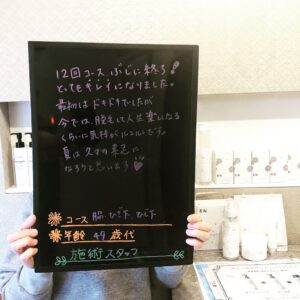 12回コース、ぶじに終了!
とってもキレイになりました。
最初は ドキドキでしたが
今では、脱毛して人生楽しくなる
くらいに気持がルンルンです。
夏は久々の
なろうと思います
コース 脇、ひざ下、ひじ下
年齢 49 歳代
施術スタッフ
EN